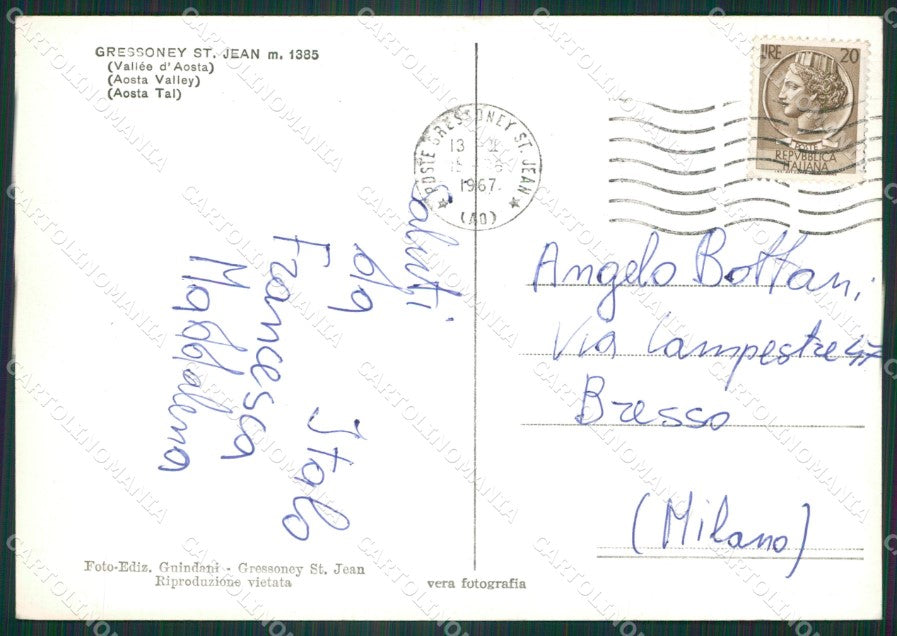 GRESSONEY ST. JEAN m. 1385
(Vallée d'Aosta)
(Aosta Valley)
(Aosta Tal)
POSTE GRESSONEY ST. JEAN
13
1967
(AO)
LIRE 20
POSTE
REPVBBLICA
ITALIANA
Saluti
da Italo
Francesca
Maddalena
Angelo Bottani
Via Campestre 47
Bresso
(Milano)
Foto-Ediz. Guindani - Gressoney St. Jean
Riproduzione vietata
vera fotografia
CARTOLINOMANIA